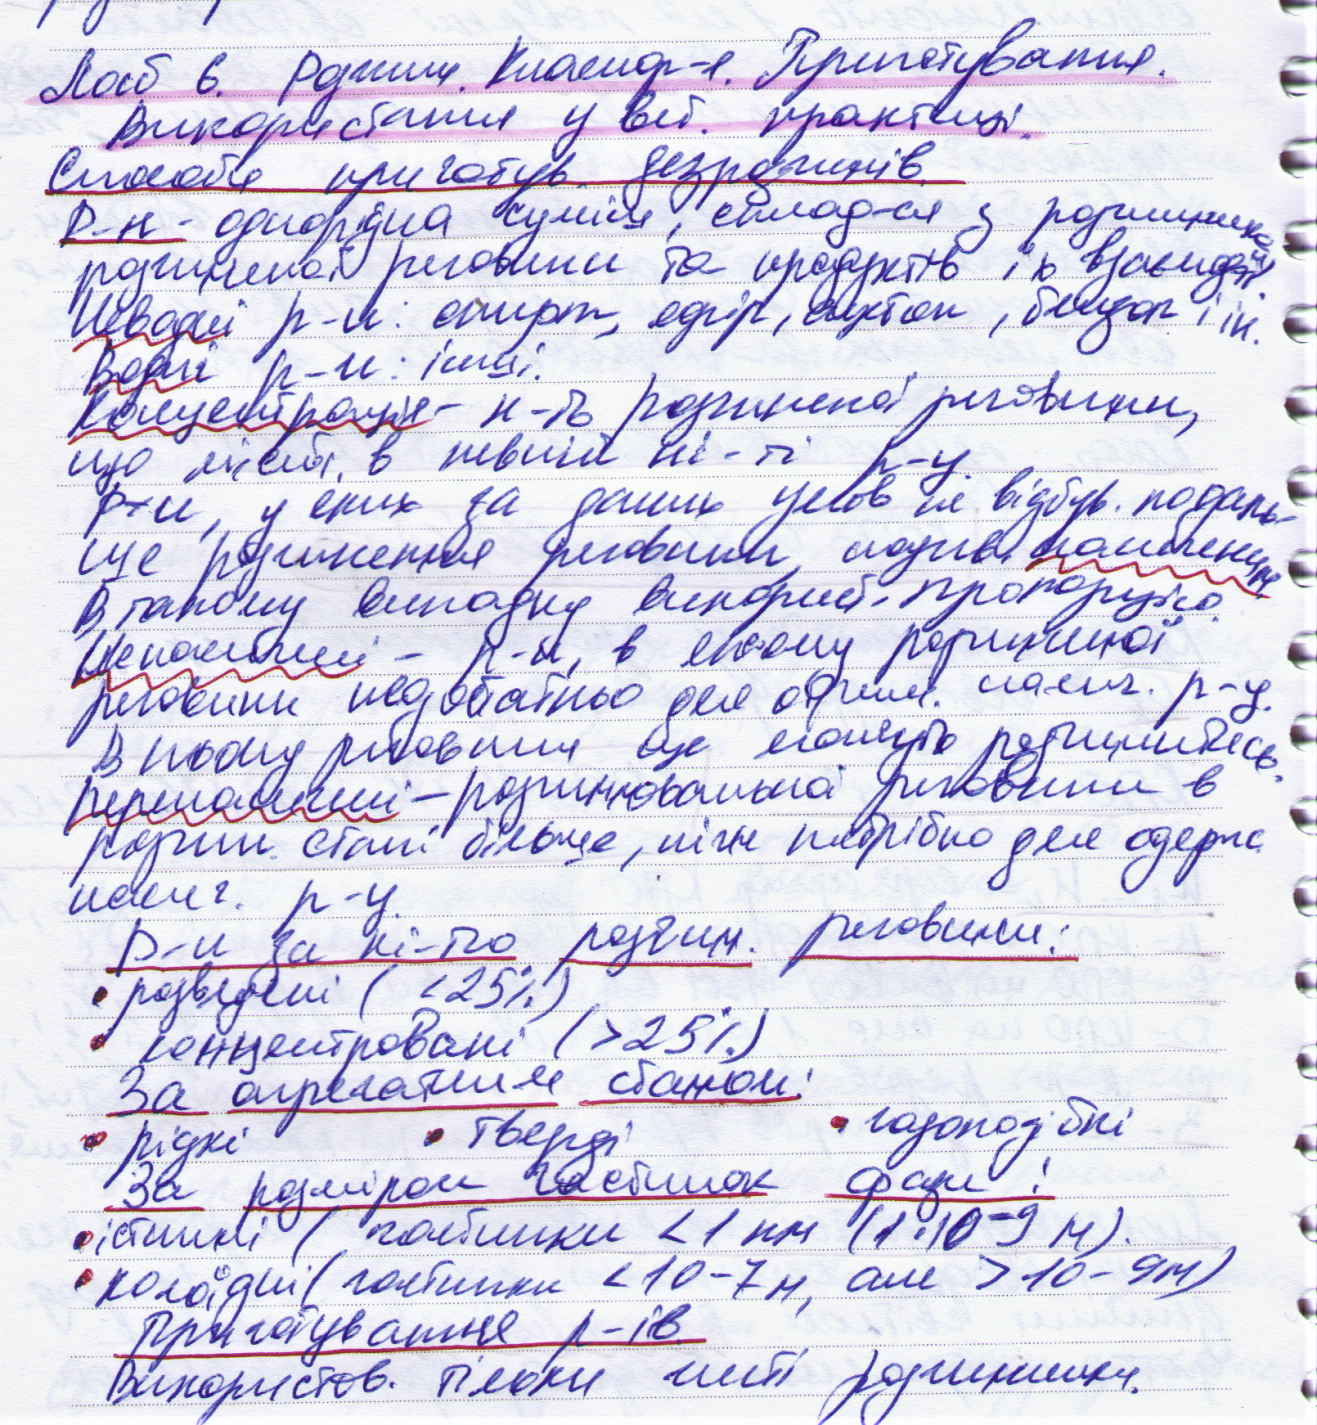 Лаб 6. Розчини. Класифік-я. Приготування.
Використання у вет. практиці.
Способи приготув. дезрозчинів
Р-н - однорідна суміш, склад-ся з розчинника,
розчиненої речовини та продуктів їх взаємодії.
Неводні р-ни: спирт, ефір, ацетон, бензол і ін.
Водні р-ни: інші.
Концентрація - к-ть розчиненої речовини,
що міст. в певній кі-ті р-у.
Р-ни, у яких за даних умов не відбув. подаль-
ше розчинення речовини, назив. насиченими
В такому випадку використ. пропорцію.
Ненасичені - р-н, в якому розчиненої
речовини недостатньо для отрим. насич. р-у.
В ньому речовина ще може розчинитись.
Перенасичені - розчиннювальної речовини в
розчин. стані більше, ніж потрібно для одерж.
насич. р-у.
Р-и за кі-тю розчин. речовини:
• розведені (<25%)
• концентровані (>25%)
За агрегатним станом:
• рідкі • тверді • газоподібні
За розміром частинок фази:
• істинні (частинки <1 нм (1·10-9 м).
• колоїдні (частинки <10-7м, але >10-9м)
Приготування р-ів.
Використов. тільки чисті розчинники.